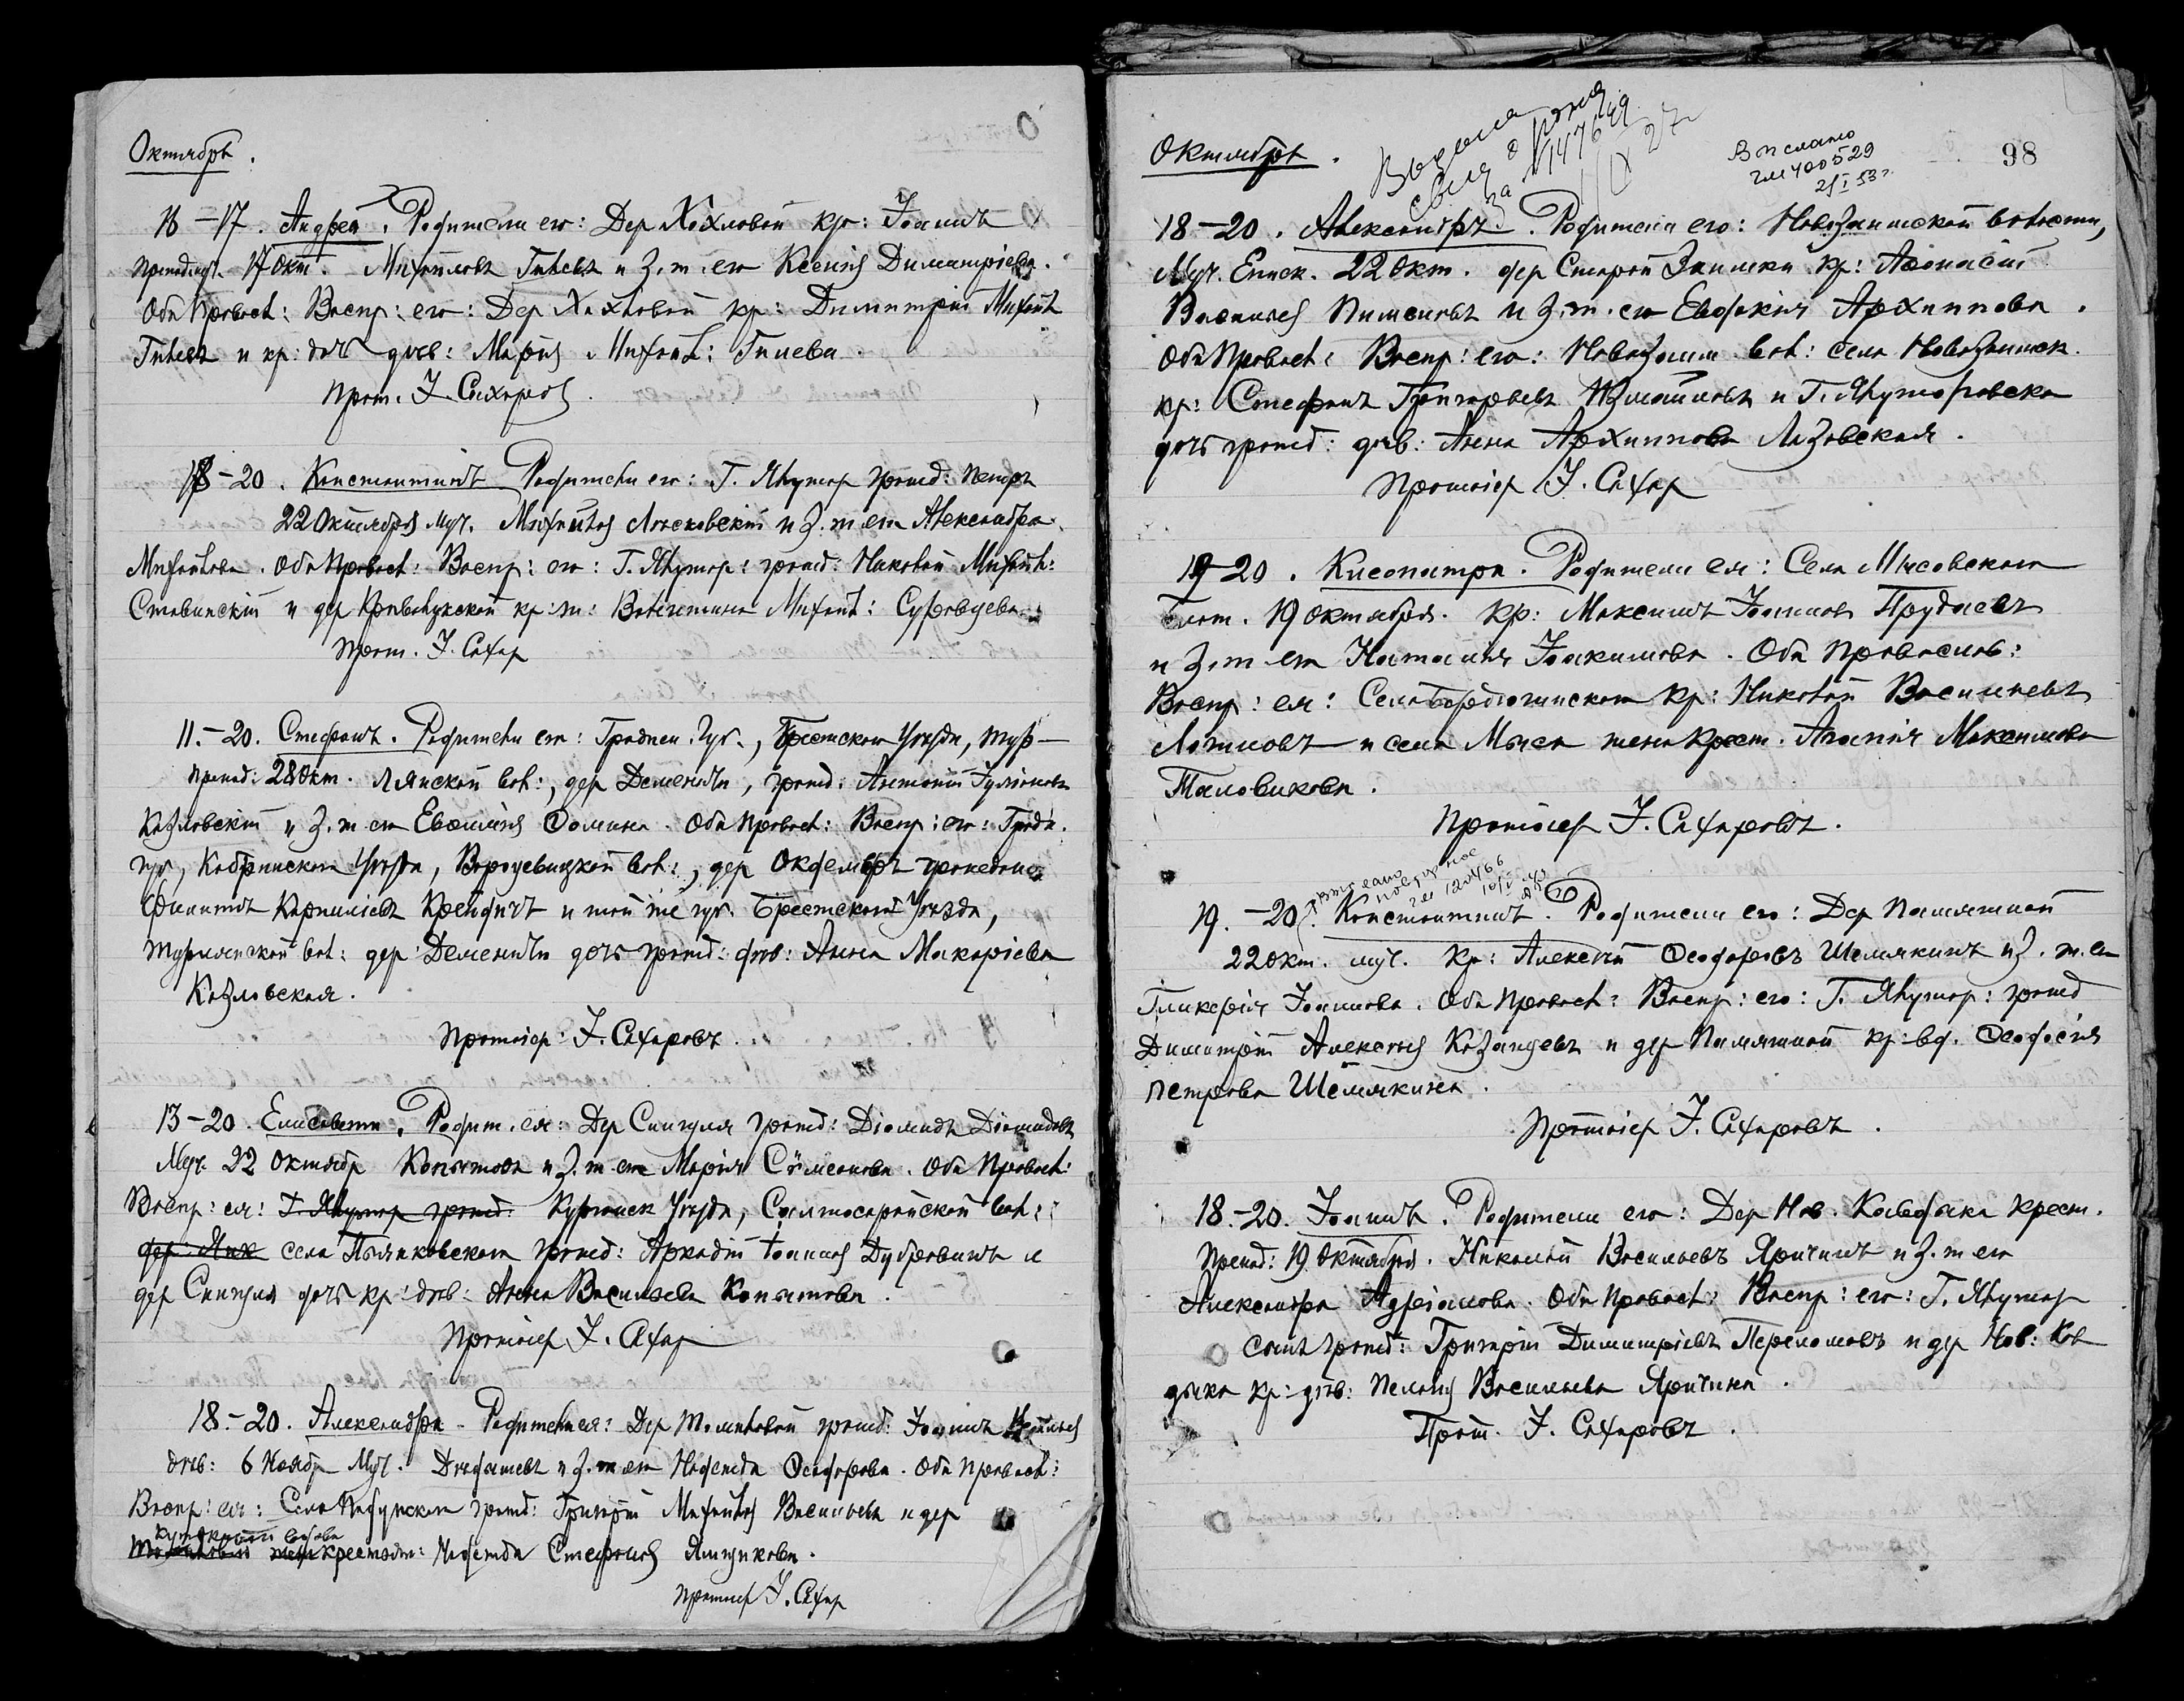 Октябрь.
16-17. Андрей. Родители его: Дер Хохловой кр: Іоаннъ
Преподоб. 17 окт. Михаиловъ Гилевъ и з. ж. его Ксенія Димитріева.
Оба Правосл: Воспр: его: Дер Хохловой кр: Димитрій Михаил
Гилевъ и кр: дочь дѣв: Марія Михаил: Гилева.
Прот. І. Сахаров
18-20. Константинъ Родители его: Г. Ялутор гражд: Петръ
22 Октября муч. Михайлов и з. ж. его Александра
Михайлова. Оба Правосл: Воспр: его: Г. Ялутор: гражд: Николай Михайл:
Ставинскій и дер Криволукской кр: ж: Валентина Михаил: Суровцева
Прот. І. Сахар
11.-20. Стефанъ. Родители его: Гроднен. Губ., Брестскаго Уѣзда, Тур-
Препод: 28 Окт. лянской вол:, дер Деменичи, гражд: Антоній Іуліановъ
Козловскій и з. ж его Евфимія Фомина. Оба Правосл: Воспр: его: Гродн.
губ, Кобринскаго Уѣзда, Вороцевицкой вол:, дер гражданинъ
Филиппъ Корниліевъ Крейдичъ и той же губ. Брестскаго Уѣзда,
Турнянской вол: дер: Деменичи дочь гражд: дѣв: Анна Макаріева
Козловская.
Протоіер: І. Сахаровъ.
13-20. Елисавета. Родит. ея: Дер Сингуля гражд: Діомидъ Діомидовъ
Муч. 22 Октябр Копотова и з. ж. его Марія Сѵмеонова. Оба Правосл:
Воспр: ея: Г. Ялутор гражд: Курганск Уѣзда, Салтосарайской вол:
дер Ялх села Пьянковскаго гражд: Аркадій Іоаннов Дубровинъ и
дер Сингуля дочь кр: дѣв: Анна Васильева Копотова.
Протоіер І. Сахар
18.-20. Александра. Родители ея: Дер Томиловой гражд: Іоаннъ
дѣв: 6 Ноябр Муч. и з. ж его Надежда Ѳеодорова. Оба Правосл:
Воспр: ея: Села гражд: Григорій Михайлов Васильевъ и дер
вдова
Томиловой жена крестьян: Надежда Стефанов Ямщикова.
Протоіер І. Сахар
Октябрь.
Выслано
21/I 53 г.
98
18-20. Александръ. Родители его: Новозаимской волости,
Муч. Еписк. 22 Окт. дер Старой Заимки кр: Афанасій
Васильев Пименовъ и з. ж. его Евдокія Архиппова.
Оба Правосл: Воспр: его: Новозаим. вол: села Новозаимск.
кр: Стефанъ Григорьевъ Измайловъ и Г. Ялуторовска
дочь гражд: дѣв: Анна Архиппова Лазовская.
Протоіер І. Сахар
19-20. Клеопатра. Родители ея: Села Мысовского
19 Октября. кр: Максимъ Іоаннов Прудаевъ
и з. ж его Наталія Іоакимова. Оба Правослов:
Воспр: ея: Села Бердюгинскаго кр: Николай Васильевъ
Логиновъ и села Мыса жена крест. Агапія Максимова
Таловикова.
Протоіер І. Сахаровъ.
19.-20. Константинъ. Родители его: Дер Памятной
22 окт. муч. кр: Алексѣй Ѳеодоровъ Шемякинъ и з. ж. его
Гликерія Іоаннова. Оба Правосл: Воспр: его: Г. Ялутор: гражд
Димитрій Алексѣев Казанцевъ и дер Памятной кр: вд. Ѳеодосія
Петрова Шемякина.
Протоіер І. Сахаровъ.
18.-20. Іоаннъ. Родители его: Дер Нов. Кавдыка крест.
Препод: 19 Октября. Николай Васильевъ Яричинъ и з. ж его
Александра Адріанова. Оба Правосл: Воспр: его: Г. Ялутор
сынъ гражд: Григорій Димитріевъ Переломовъ и дер Нов: Кав
дыка кр: дѣв: Пелагія Васильева Яричина.
Прот. І. Сахаровъ.